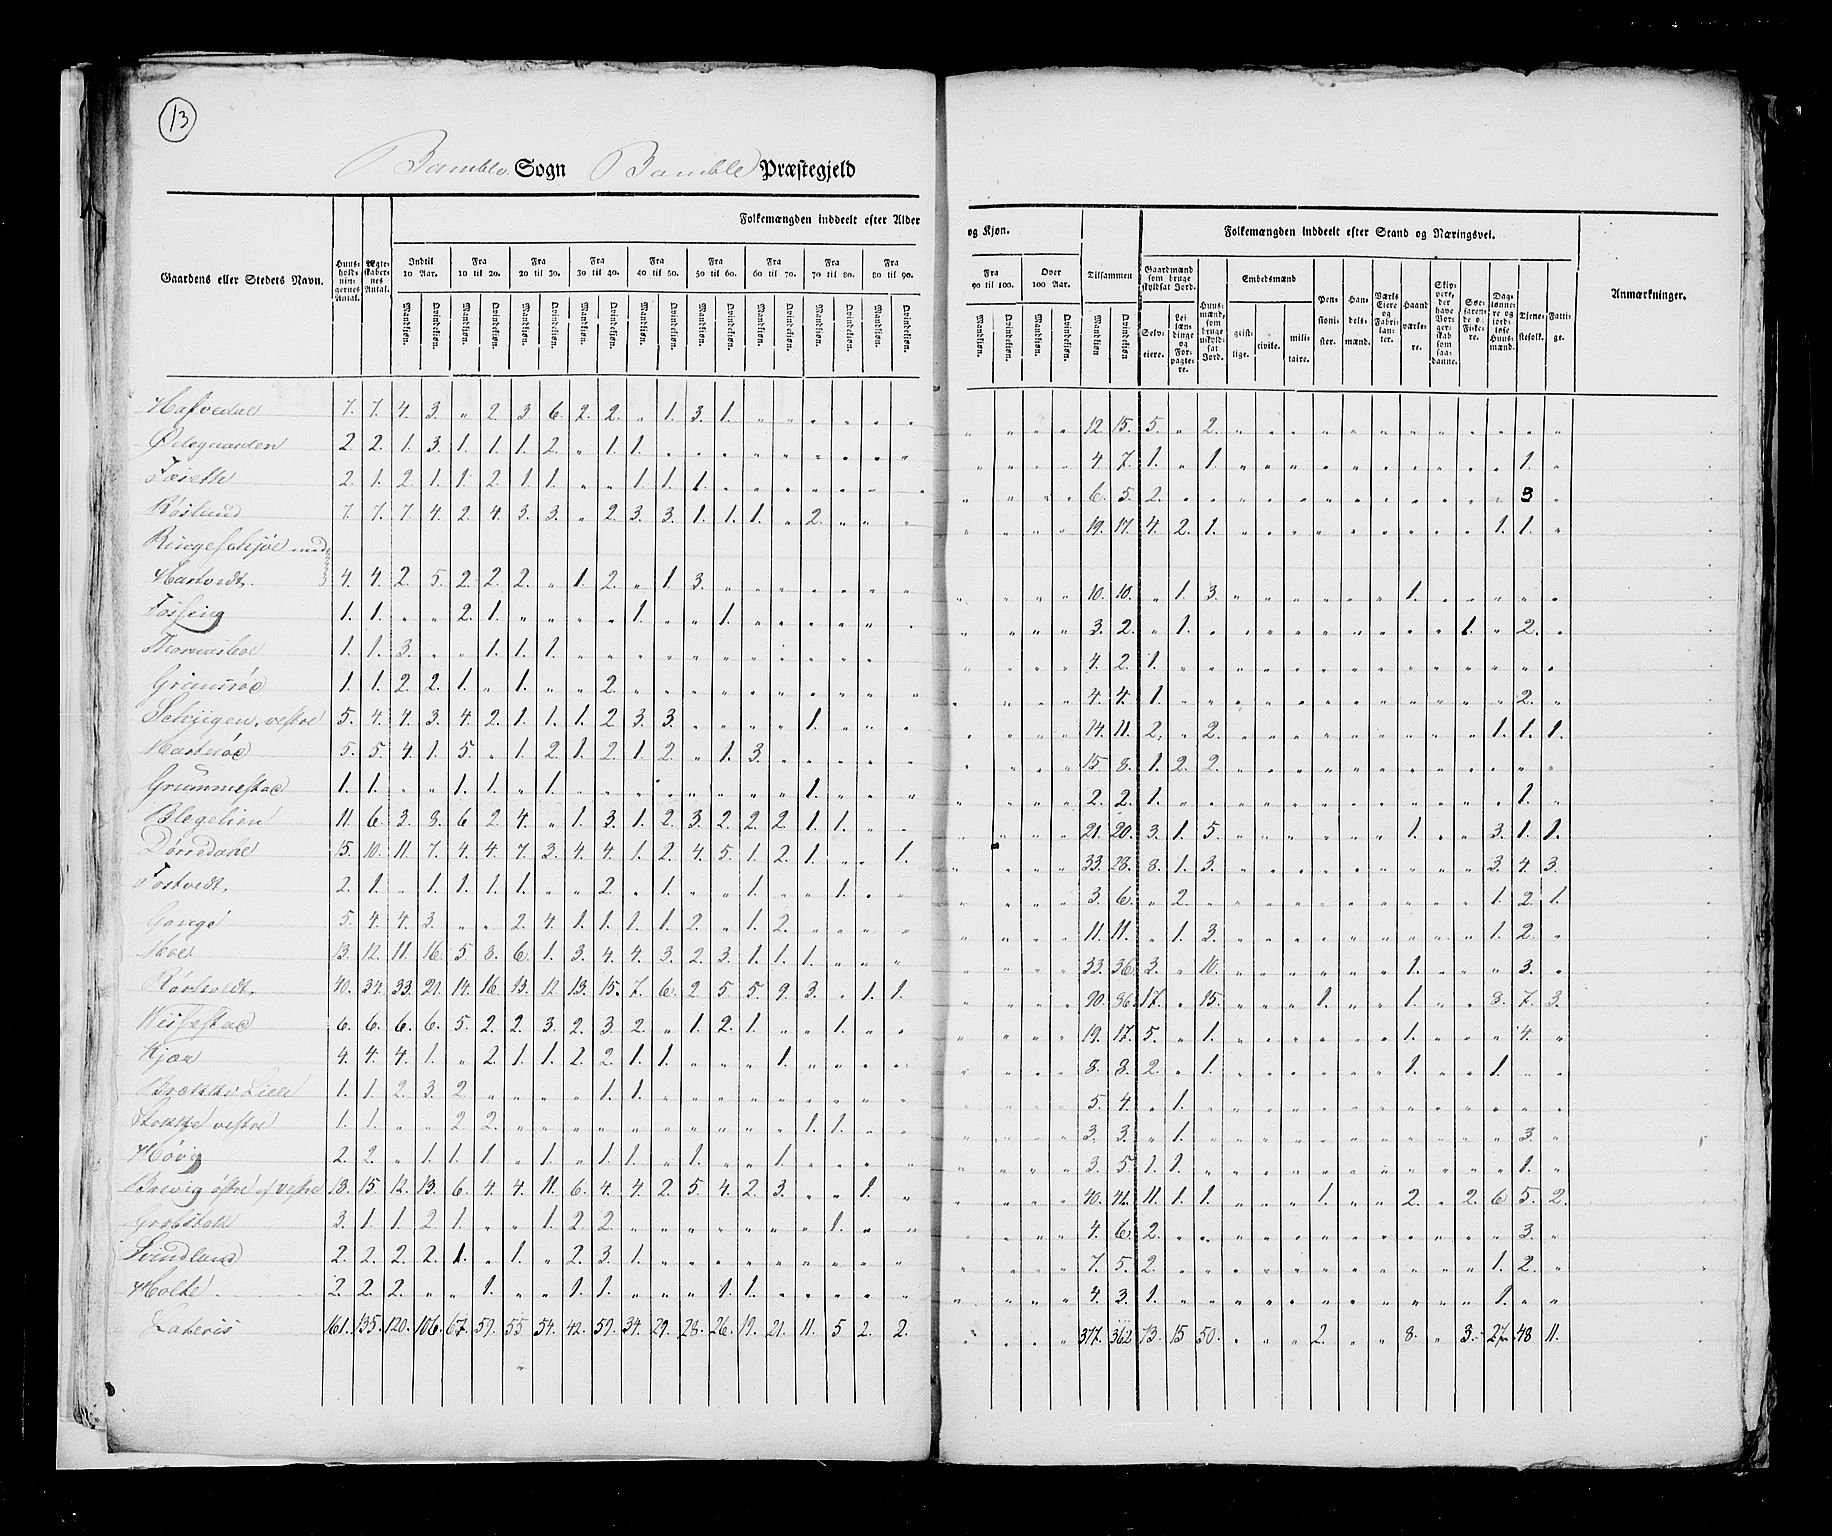 13
Bamble Sogn Bamble Præstegjeld
Folkemængden inddeelt efter Alder og Kjøn.
Folkemængden inddeelt efter Stand og Næringsvei.
Gaardens eller Stedets Navn.
Huusholdningernes Antal.
Ægteskabernes Antal.
Indtil 10 Aar.
Fra 10 til 20.
Fra 20 til 30.
Fra 30 til 40.
Fra 40 til 50.
Fra 50 til 60.
Fra 60 til 70.
Fra 70 til 80.
Fra 80 til 90.
Fra 90 til 100.
Over 100 Aar.
Tilsammen
Mandkjøn. Qvindekjøn.
Gaardmænd som bruge skyldsat Jord.
Selveiere.
Leilændinge og Forpagtere.
Huusmænd, som bruge uskyldsat Jord.
Embedsmænd
geistlige. civile. militaire.
Pensionister.
Handelsmænd.
Værks Eiere og Fabrikanter.
Haandværkere.
Skippere, der have Borgerskab som saadanne.
Søefarende og Fiskere.
Daglønnere og jordløse Huusmænd.
Tjenestefolk.
Fattige.
Anmærkninger.
Hafvedal 7. 7. 4. 3. „ 2. 3. 6. 2. 2. „ 1. 3. 1. „ „ „ „ „ „ „ „ „ „ 12. 15. 5. „ 2.
Ødegaarden 2. 2. 1. 3. 1. 1. 1. 2. „ 1. 1. 4. 7. 1. „ 1. 1.
2. 1. 2. 1. 1. 2. 1. 1. „ „ 1. 1. 1. 6. 5. 2. 3
Røsland 7. 7. 7. 4. 2. 4. 3. 3. „ 2. 3. 3. 1. 1. 1. „ 2. 19. 17. 4. 2. 1. 1. 1.
Ringeschjøe med
Hastvedt. 4. 4. 2. 5. 2. 2. 2. „ 1. 2. „ 1. 3. 10. 10. „ 1. 3. 1.
1. 1. „ „ 2. 1. 1. 1. 3. 2. „ 1. 1. „ 2.
1. 1. 3. „ „ 1. 1. 1. 4. 2. 1.
Grimsrød 1. 1. 2. 2. 1. „ 1. „ „ 2. 4. 4. 1. 2.
vestre 5. 4. 4. 3. 4. 2. 1. 1. 1. 2. 3. 3. 1. 14. 11. 2. „ 2. 1. 1. 1.
5. 5. 4. 1. 5. „ 1. 2. 1. 2. 1. 2. „ 1. 3. 15. 8. 1. 2. 2.
Grummestad 1. 1. „ „ 1. 1. „ 1. 1. 2. 2. 1. 1.
Blegelien 11. 6. 3. 8. 6. 2. 4. „ 1. 3. 1. 2. 3. 2. 2. 2. 1. 1. 21. 20. 3. 1. 5. 1. 3. 1. 1.
Dørredahl 15. 10. 11. 7. 4. 4. 7. 3. 4. 4. 1. 2. 4. 5. 1. 2. 1. „ „ 1. 33. 28. 8. 1. 3. 3. 4. 3.
Tostvedt. 2. 1. „ 1. 1. 1. 1. „ „ 2. „ 1. „ „ 1. „ „ 1. 3. 6. „ 2. 1. 2. 1.
Gongé 5. 4. 4. 3. „ „ 2. 4. 1. 1. 1. 1. 2. „ 1. 2. 11. 11. „ 1. 3. 1. 2.
Hoel 13. 12. 11. 16. 5. 8. 6. 1. 3. 4. 4. 3. 2. 3. 1. 1. 1. 33. 36. 3. „ 10. 1. 3.
Rønholdt. 40. 34. 33. 21. 14. 16. 13. 12. 13. 15. 7. 6. 2 5. 5. 9. 3. „ 1. 1. 90. 86. 17. „ 15. 1. 1. 8. 7. 3.
Wissestad 6. 6. 6. 6. 5. 2. 2. 3. 2. 3. 2. „ 1. 2. 1. „ „ 1. 19. 17. 5. „ 1. 1. 4.
Kjær 4. 4. 4. 1. „ 2. 1. 1. 2. 2. 1. 1. „ „ „ 1. 8. 8. 2. „ 1. 1. 1.
Brække Lille 1. 1. 2. 3. 2 „ „ „ „ 1. 1. 5. 4. „ 1.
Stokke vestre 1. 1. „ „ 2. 2. 1. 1. 3. 3. „ 1. 3.
Høvg 2. 2. „ 1. 1. 1. „ 1. „ 1. 1. „ 1. „ „ 1. 3. 5 1. 1. 1.
Brevig østre og vestre 18. 15. 12. 13. 6. 4. 4. 11. 6. 4. 4. 2. 5. 4. 2. 3. „ „ 1. „ 40. 41. 11. 1. 1. 1. 2. „ 2. 6 5. 2.
Grobstok 3. 1. 1. 2. 1. „ „ 1. 2. 2. 1. 4. 6. 2. 3.
Svindland 2. 2. 2. 2. 1. „ 1. „ 2. 3. 1. 7. 5. 2. 1. 2.
Holte 2. 2. 2. „ „ 1. „ „ 1. 1. „ „ „ 1. 1. 4. 3. 1. 1.
Lateris 161. 135. 120. 106. 67. 59. 55 54. 42. 59. 34. 29. 28. 26. 19. 21. 11. 5 2. 2. 377. 362 73. 15 50. 2. 8. „ 3. 27. 48 11.